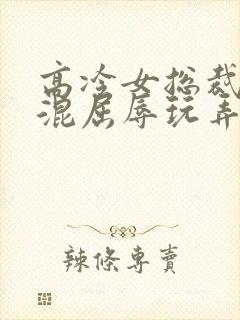 高冷女总裁
混屈辱玩弄
辣條專賣